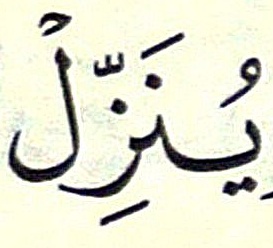 يُنَزِّلْ